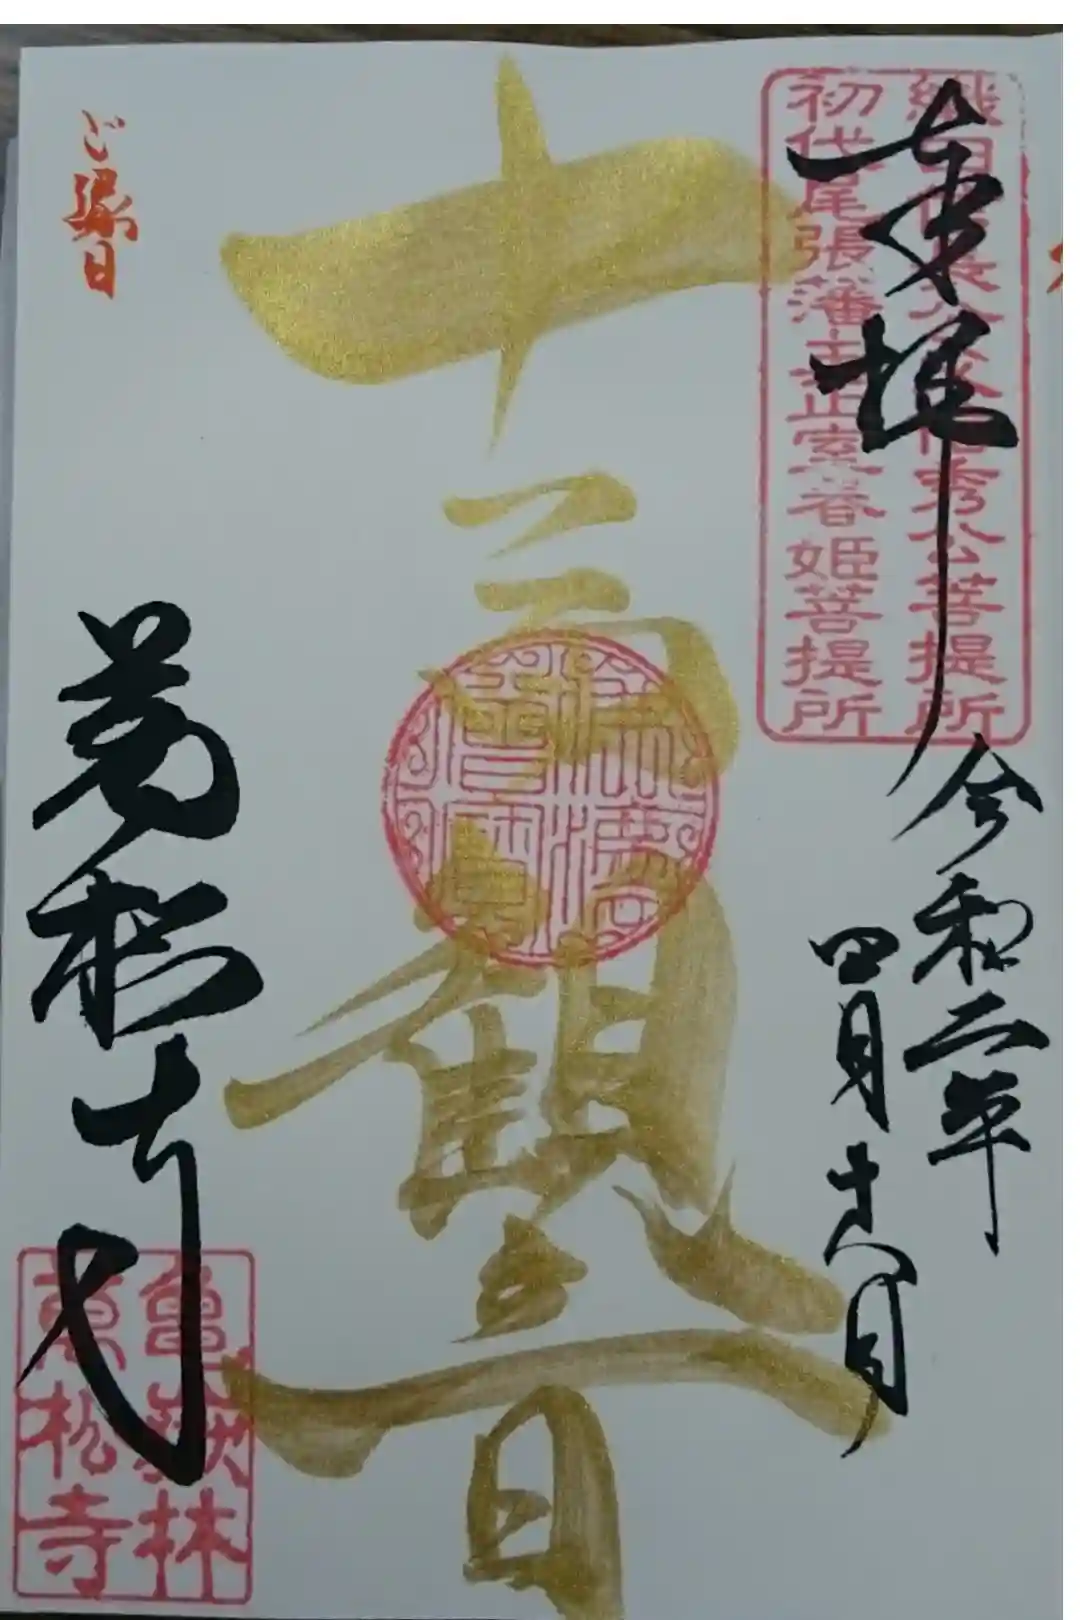 奉拝
織田信長公父信秀公菩提所
初代尾張藩主正室春姫菩提所
令和二年
四月十八日
十一面観音
ご縁日
萬松寺
亀嶽林
萬松寺